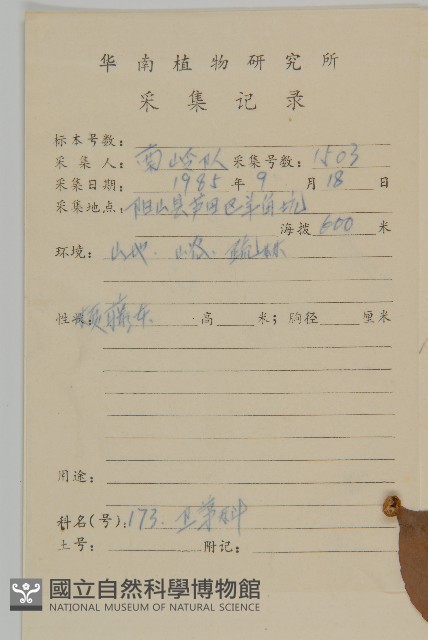 华南植物研究所
采集记录
标本号数：
采集人：南岭队 采集号数：1503
采集日期：1985年9月18日
采集地点：阳山县 田区羊 坑
海拔 600 米
环境：山地．山谷．疏林
性状： 藤本 高 米；胸径 厘米
用途：
科名(号)：173．卫茅科
土号： 附记：
國立自然科學博物館
NATIONAL MUSEUM OF NATURAL SCIENCE